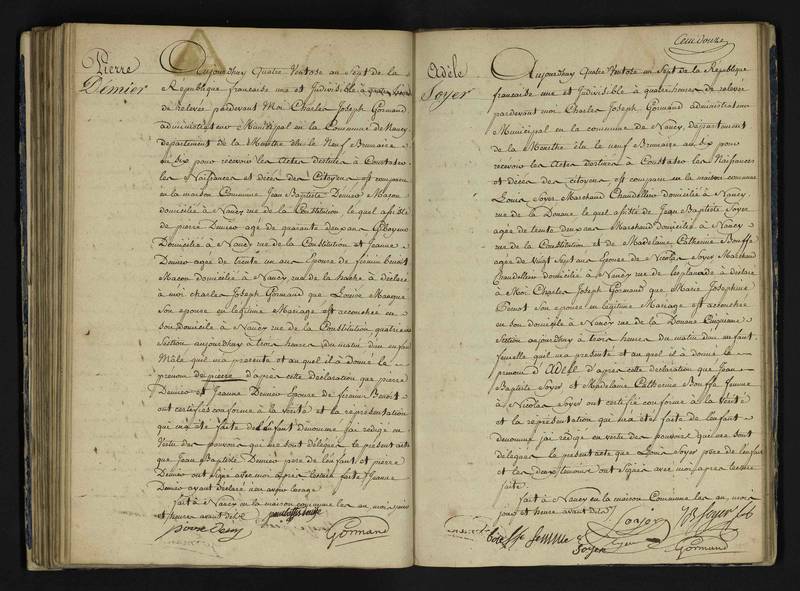 Pierre
Démier
Aujourdhuy quatre Ventose an Sept de la
République francaise une et Indivisible à quatre heures
de relevée pardevant Moi Charles Joseph Gormand
administrateur Municipal en la Commune de Nancy
departement de la Meurthe élu le Neuf Brumaire
an six pour recevoir les Actes destinés à Constater
les Naissances et décès des Citoyens est comparu
en la maison Commune Jean Baptiste Demier Macon
domicilié à Nancy rue de la Constitution le quel assisté
de pierre Demier agé de quarante deux ans
Domicilié à Nancy rue de la Constitution et Jeanne
Demier agée de trente un ans Epouse de firmin benoit
Macon domicilié à Nancy rue de la hache à déclaré
à moi charles Joseph Gormand que Louise
son epouse en legitime Mariage est accouchée en
son domicile à Nancy rue de la Constitution quatrieme
Section aujourdhuy à trois heures du matin d'un enfant
Mâle qui m'a presenté et au quel il à donné le
prenom de pierre d'après cette Déclaration que pierre
Demier et Jeanne Demier Epouse de firmin Benoit
ont certifiés conforme à la Vérité et la représentation
qui m'a été faite de l'enfant dénommé j'ai rédigé en
Vertu des pouvoirs qui me sont délégués le présent acte
que Jean Baptiste Demier père de l'enfant et pierre
Demier ont signé avec moi après lecture faite Jeanne
Demier ayant déclaré
fait à Nancy en la maison commune les an mois jour
et heures avant dits
Gormand
Cent douze
Adèle
Soyer
Aujourdhuy quatre Ventose an Sept de la République
francaise une et Indivisible à quatre heures de relevée
pardevant moi Charles Joseph Gormand administrateur
Municipal en la commune de Nancy, département
de la Meurthe élu le neuf Brumaire an six pour
recevoir les Actes destinés à Constater les Naissances
et décès des citoyens est comparu en la maison commune
Louis Soyer Marchand Chandellier domicilié à Nancy
rue de la Douane le quel assisté de Jean Baptiste Soyer
agée de trente deux ans Marchand domicilié à Nancy
rue de la Constitution et de Madelaine Catherine Bouffe
agée de Vingt Sept ans Epouse de Nicolas Soyer Marchand
Chandellier domicilié à Nancy rue de l'esplanade à déclaré
à Moi Charles Joseph Gormand que Marie Josephine
son epouse en legitime Mariage est accouchée
en son domicile à Nancy rue de la Douane Cinquieme
Section aujourdhuy à trois heures du matin d'un enfant
femelle qui m'a presenté et au quel il à donné le
prenom d'Adele d'après cette déclaration que Jean
Baptiste Soyer et Madelaine Catherine Bouffe femme
à Nicolas Soyer ont certifié conforme à la Vérité
et la représentation qui m'a été faite de l'enfant
denommé j'ai rédigé en vertu des pouvoirs qui me sont
délégués le présent acte que Louis Soyer père de l'enfant
et les deux temoins ont signés avec moi après lecture
faite.
fait à Nancy en la maison Commune les an mois
jour et heures avant dits
JB Soyer
femme
Soyer
Gormand